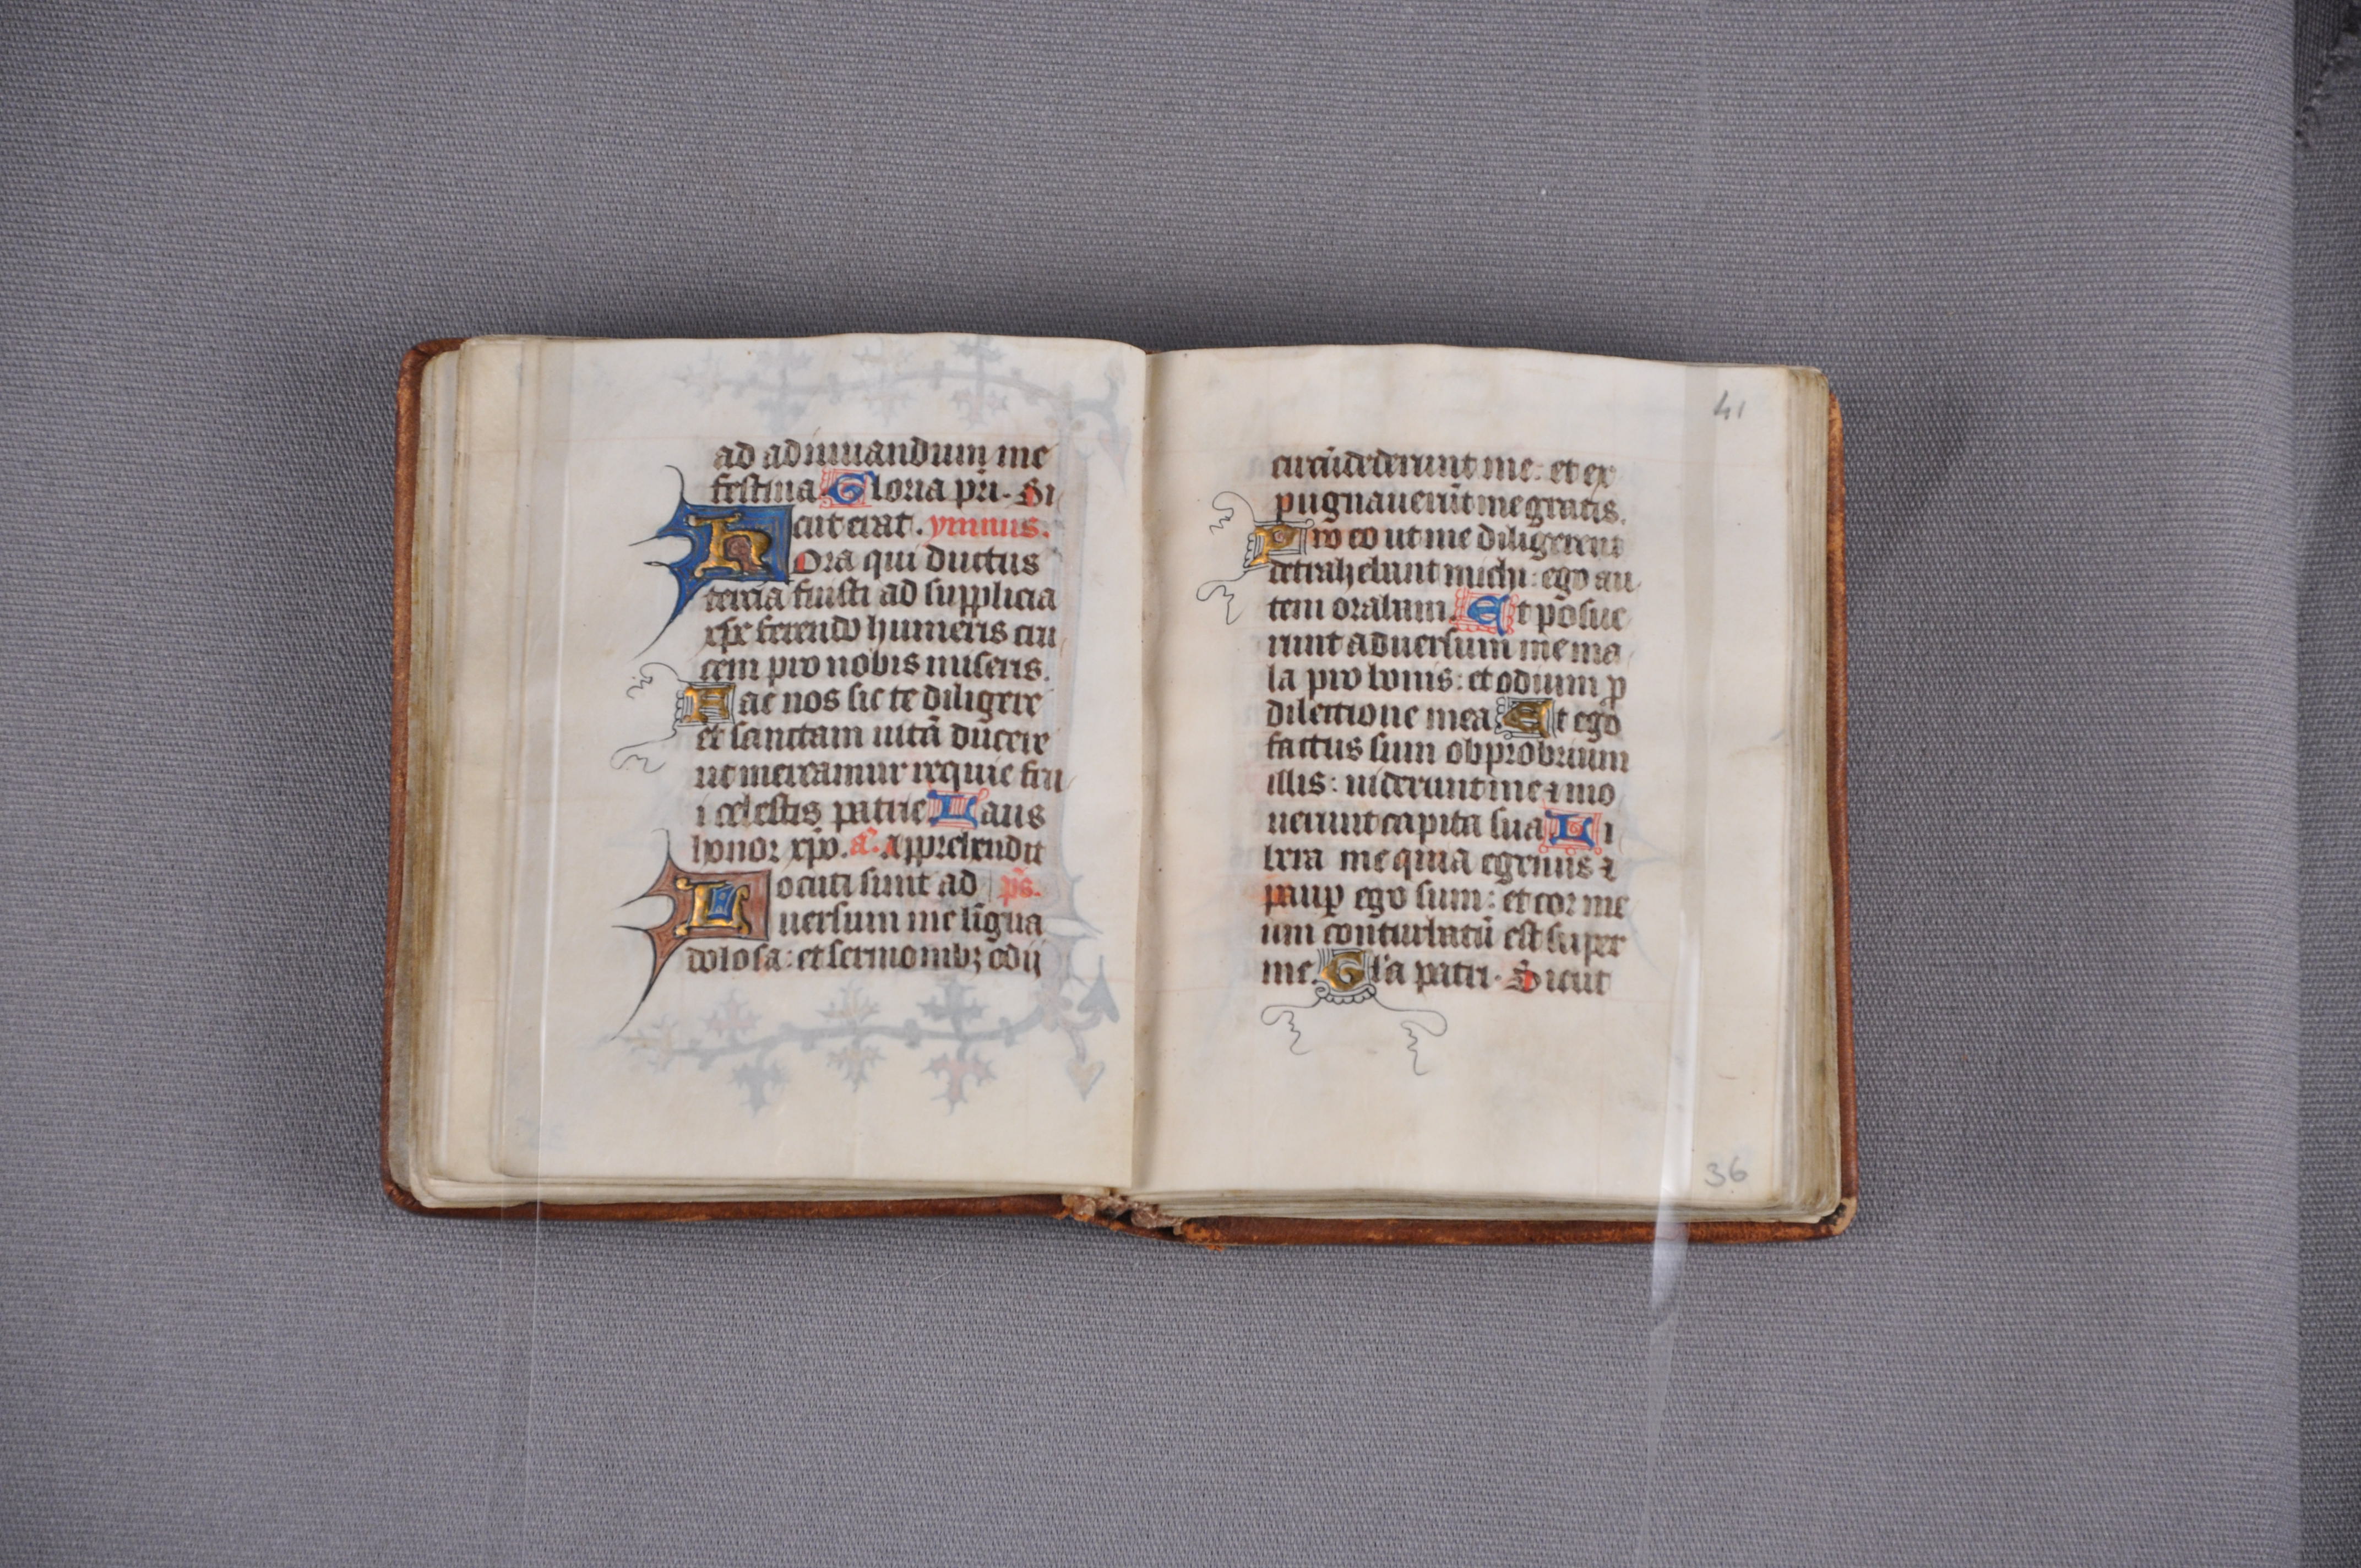 ad adiuuandum me
festina. Gloria pri. Si
cut erat. ymnus.
Hora qui ductus
tercia fuisti ad supplicia
xpe ferendo humeris cru
cem pro nobis miseris.
Fac nos sic te diligere
et sanctam uitā ducere
ut mereamur requie fru
i celestis patrie Laus
honor xpo. a. Apprehendit
Locuti sunt ad ps.
uersum me līgua
dolosa: et sermonibꝫ odij
41
circūdederunt me: et ex
pugnauerūt me gratis.
Pro eo ut me diligerent
detrahebant michi: ego au
tem orabam. Et posue
runt aduersum me ma
la pro bonis: et odium ꝓ
dilectione mea. Et ego
factus sum obprobrium
illis: uiderunt me ⁊ mo
uerunt capita sua Li
bera me quia egenus ⁊
pauꝑ ego sum: et cor me
um conturbatū est super
me. Gl'a patri. Sicut
36